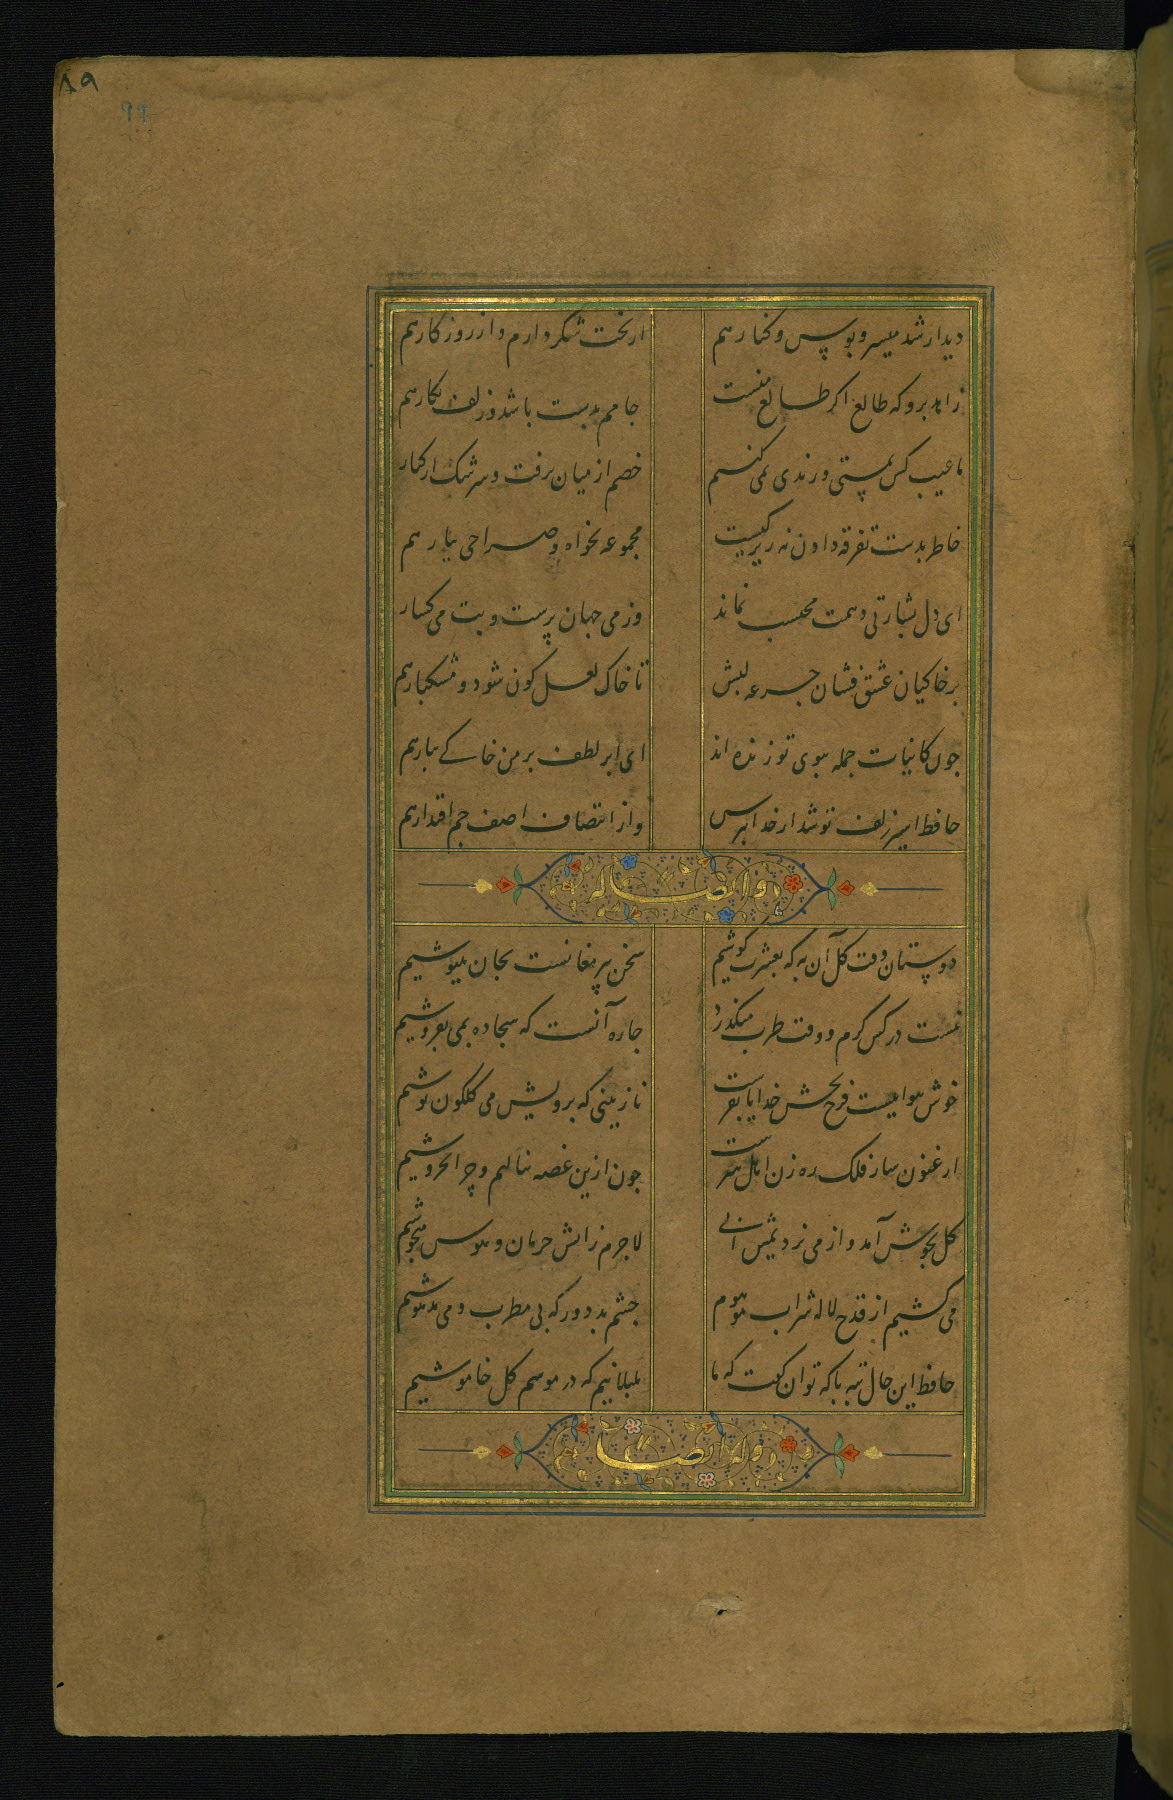 ۸۹
۹۹
دیدار شد میسر و بوس و کنار هم
از بخت شکر دارم و از روزگار هم
زاهد برو که طالع اگر طالع منست
جامم بدست باشد و زلف نگار هم
ما عیب کس بمستی و رندی نمی کنیم
خصم از میان برفت و سرشک از کنار
خاطر بدست تفرقه دادن نه زیرکیست
مجموعه بخواه و صراحی بیار هم
ای دل بشارتی دهمت محتسب نماند
وز می جهان پرست و بت می کسار
بر خاکیان عشق فشان جرعه لبش
تا خاک لعل کون شود و مشکبار هم
جون کاینات جمله ببوی تو زنده اند
ای ابر لطف بر من خاکی ببار هم
حافظ اسیر زلف تو شد از خدا بترس
و از انتصاف اصف جم اقتدار هم
دوستان وقت کل آن به که بعشرت کوشیم
سخن پیر مغانست بجان بنیوشیم
نیست در کس کرم و وقت طرب میکذرد
جاره آنست که سجاده بمی بفروشیم
خوش هواییست فرح بخش خدایا بفرست
نازنینی که برویش می کلکون نوشیم
ارغنون ساز فلک ره زن اهل هنرست
جون ازین غصه ننالیم و چرا نخروشیم
کل بجوش آمد و از می نزدیمش آبی
لاجرم ز آتش حرمان و هوس میجوشیم
می کشیم از قدح لاله شراب موهوم
جشم بد دور که بی مطرب و می مدهوشیم
حافظ این حال عجب با که توان کفت که ما
بلبلانیم که در موسم کل خاموشیم